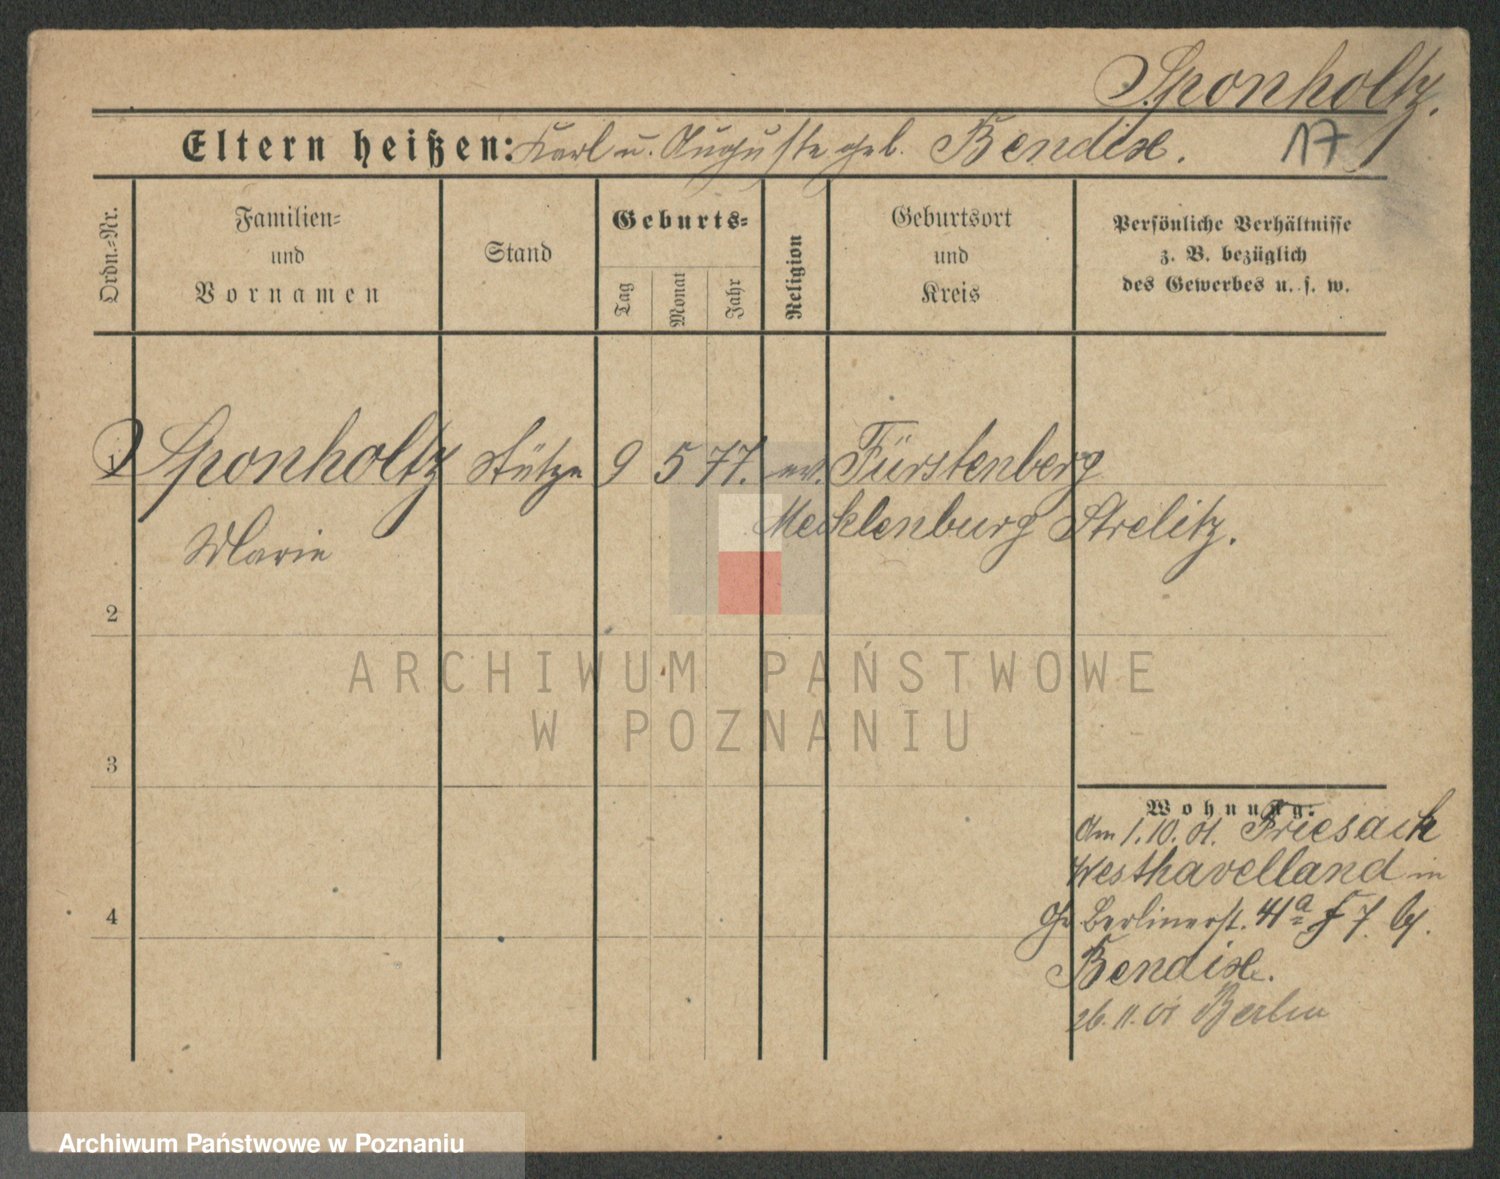 Sponholtz.
Eltern heißen: Karl u. Auguste geb. Bendix.
17
Ordn.-Nr.
Familien-
und
Vornamen
Stand
Geburts-
Tag
Monat
Jahr
Religion
Geburtsort
und
Kreis
Persönliche Verhältnisse
z. B. bezüglich
des Gewerbes u. s. w.
1 Sponholtz Stütze 9 5 77. ev. Fürstenberg
Marie Mecklenburg Strelitz.
2
3
4
Wohnung:
Am 1.10.01. Friesack
Westhavelland in
Gr. Berlinerst. 41a 7. by.
Bendix.
26.11.01 Berlin
ARCHIWUM PAŃSTWOWE
W POZNANIU
Archiwum Państwowe w Poznaniu